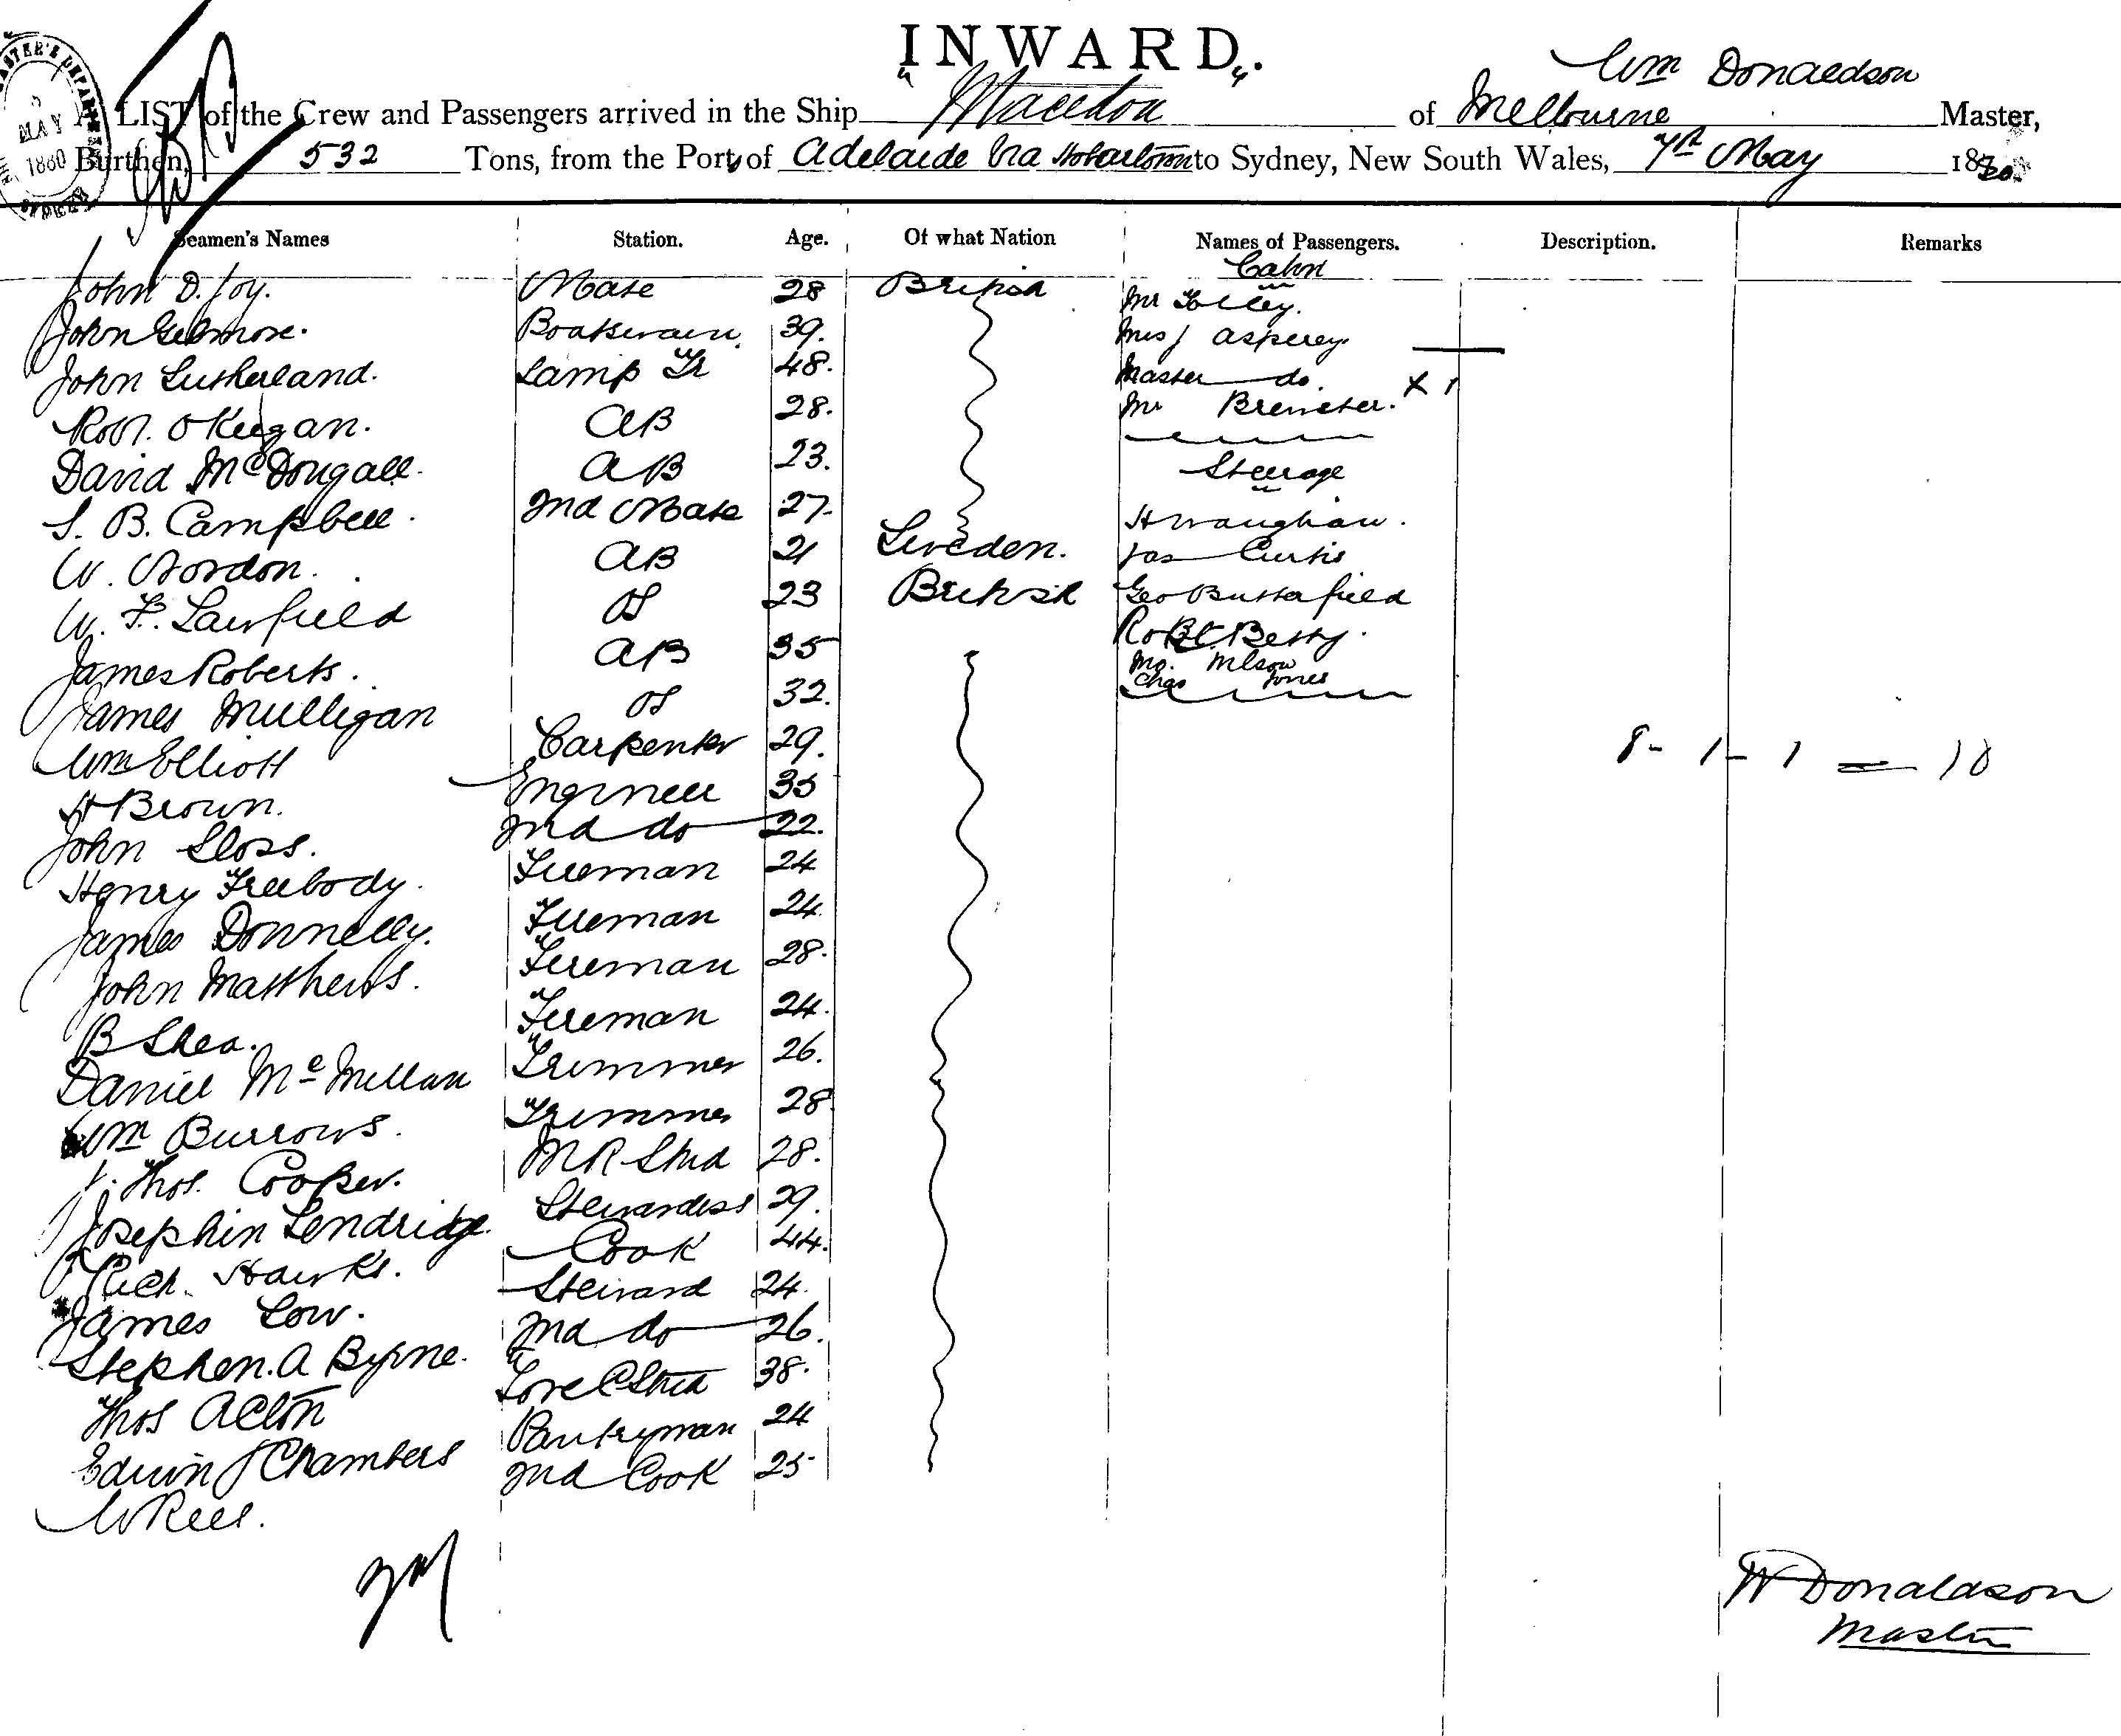 INWARD.
Wm Donaldson
A LIST of the Crew and Passengers arrived in the Ship "Macedon" of Melbourne Master,
Burthen, 532 Tons, from the Port of Adelaide via Hobartown to Sydney, New South Wales, 7th May 1880
MAY
1880
SYDNEY
Seamen's Names Station. Age. Of what Nation Names of Passengers. Description. Remarks
Cabin
John D. Joy. Mate 28 British Mr
John Gilmore. Boatswain 39. Mrs J Asperey
John Sutherland. Lamp Tr 48. Master do. X 1
Robt. O Keegan. AB 28. Mr Brewster.
David McDougall. AB 23. Steerage
S. B. Campbell. 2nd Mate 27.
W. Nordon. AB 21 Sweden. Jas Curtis
W. F. Lawfield OS 23 British Geo Butterfield
James Roberts. AB 35 Robt Betty.
Wilson
Chas Jones
James Mulligan OS 32.
Wm Elliott Carpenter 29. 8 - 1 - 1 = 10
H Brown. Engineer 35
John Sloss. 2nd do 22.
Henry Freebody. Fireman 24
James Donnelly. Fireman 24.
John Matthews. Fireman 28.
B Shea. Fireman 24.
Daniel McMillan Trimmer 26.
Wm Burrows. Trimmer 28
J. Thos. Cooper. M R Stud 28.
Josephin Lendridge. Stewardess 29.
Rich. Hawks. Cook 44.
James Low. Steward 24.
Stephen. A Byrne. 2nd do 26.
Thos Acton Fore C Stud 38.
Edwin J Chambers Pantryman 24
W Rees. 2nd Cook 25
W Donaldson
Master